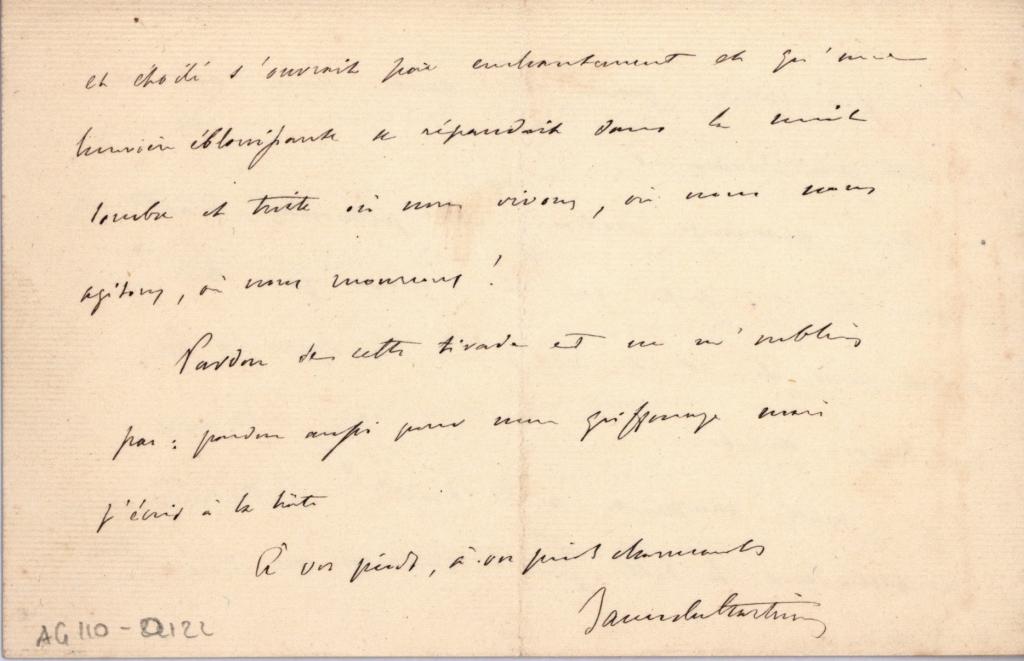 et étoilé s'ouvrait par enchantement et qu'une
lumière éblouissante se répandait dans la nuit
sombre et triste où nous vivons, où nous nous
agitons, où nous mourons !
Pardon de cette tirade et ne m'oubliez
pas : pardon aussi pour mon griffonnage mais
j'écris à la hâte
À vos pieds, à vos pieds charmants
AG 110 -